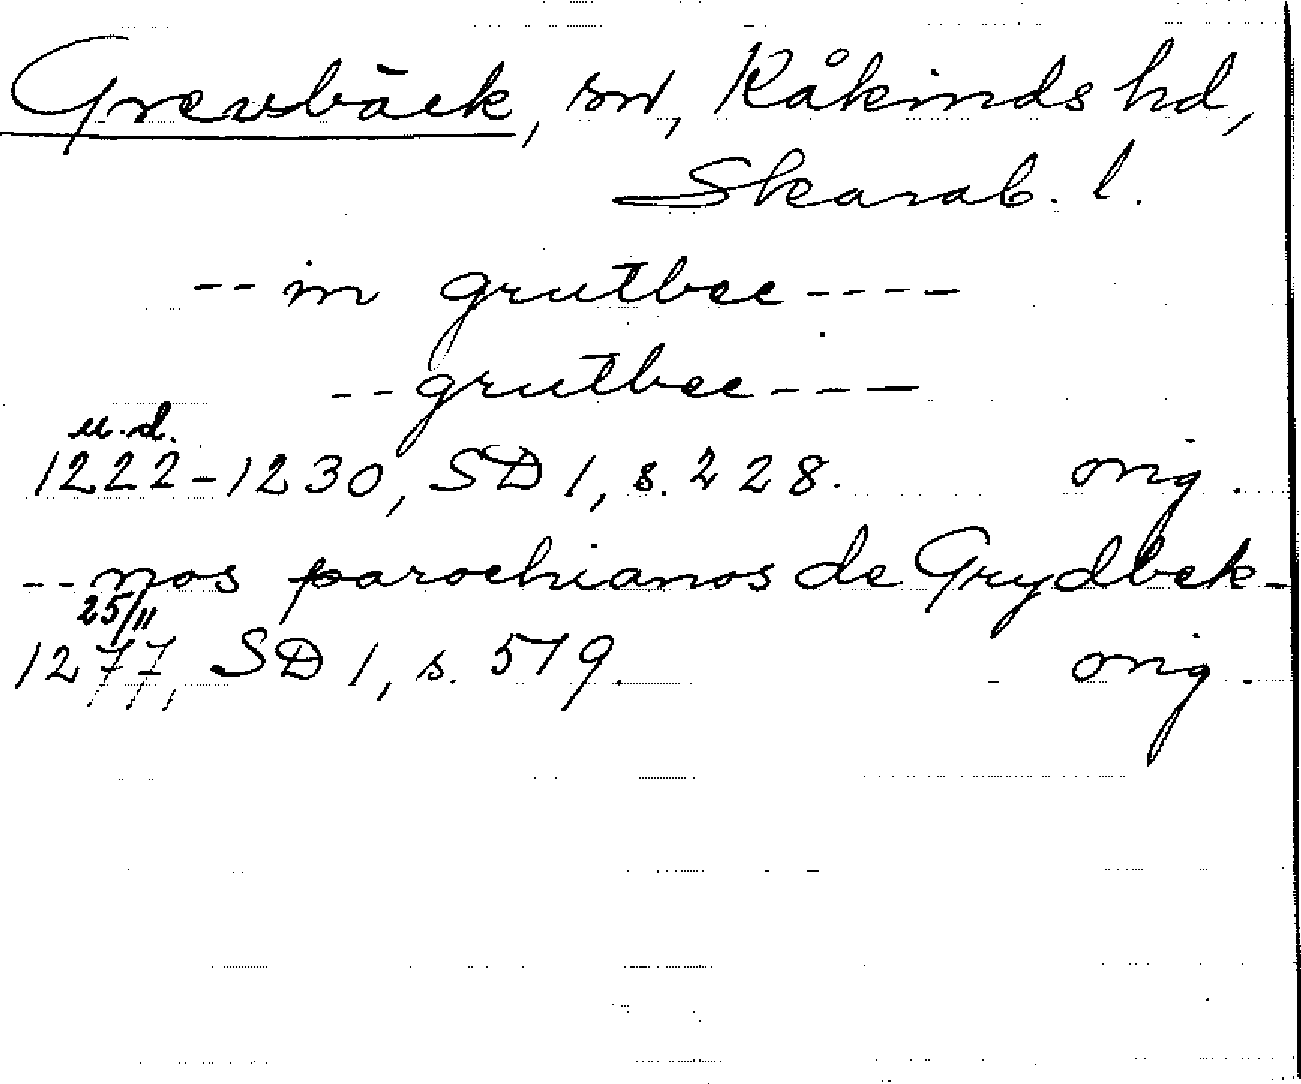 Grevbäck, sn, Kåkinds hd,
Skarab. l.
-- in grutbec ----
-- grutbec ---
u.d.
1222-1230, SD 1, s. 228. orig.
-- nos parochianos de Grydbek -
25/11
1277, SD 1, s. 519. orig.